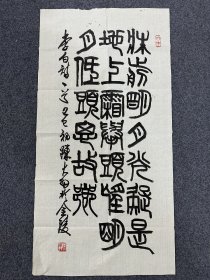 牀前明月光疑是
地上霜舉頭望明
月低頭思故鄉
李白詩 於金陵